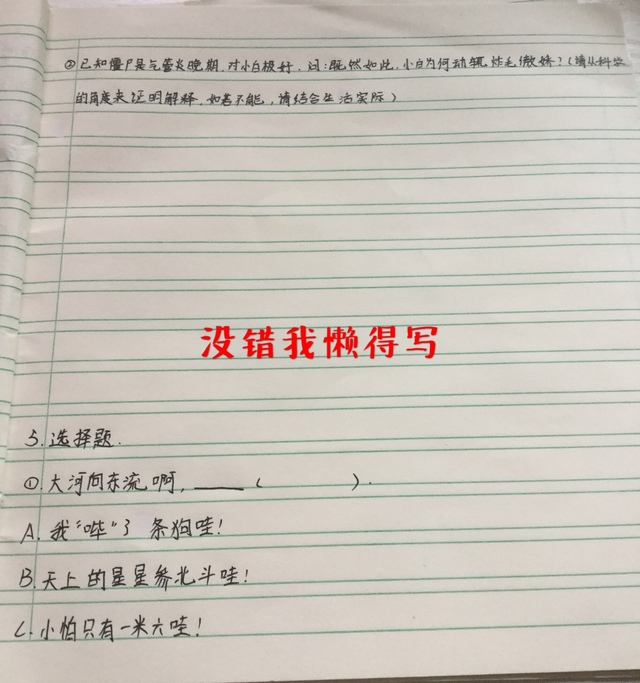 ②已知僵尸是气管炎晚期，对小白极好，问：既然如此，小白为何动辄炸毛傲娇？（请从科学
的角度来证明解释，如若不能，请结合生活实际）
没错我懒得写
5.选择题.
①大河向东流啊，____（ ）.
A.我“哔”了条狗哇！
B.天上的星星参北斗哇！
C.小怕只有一米六哇！